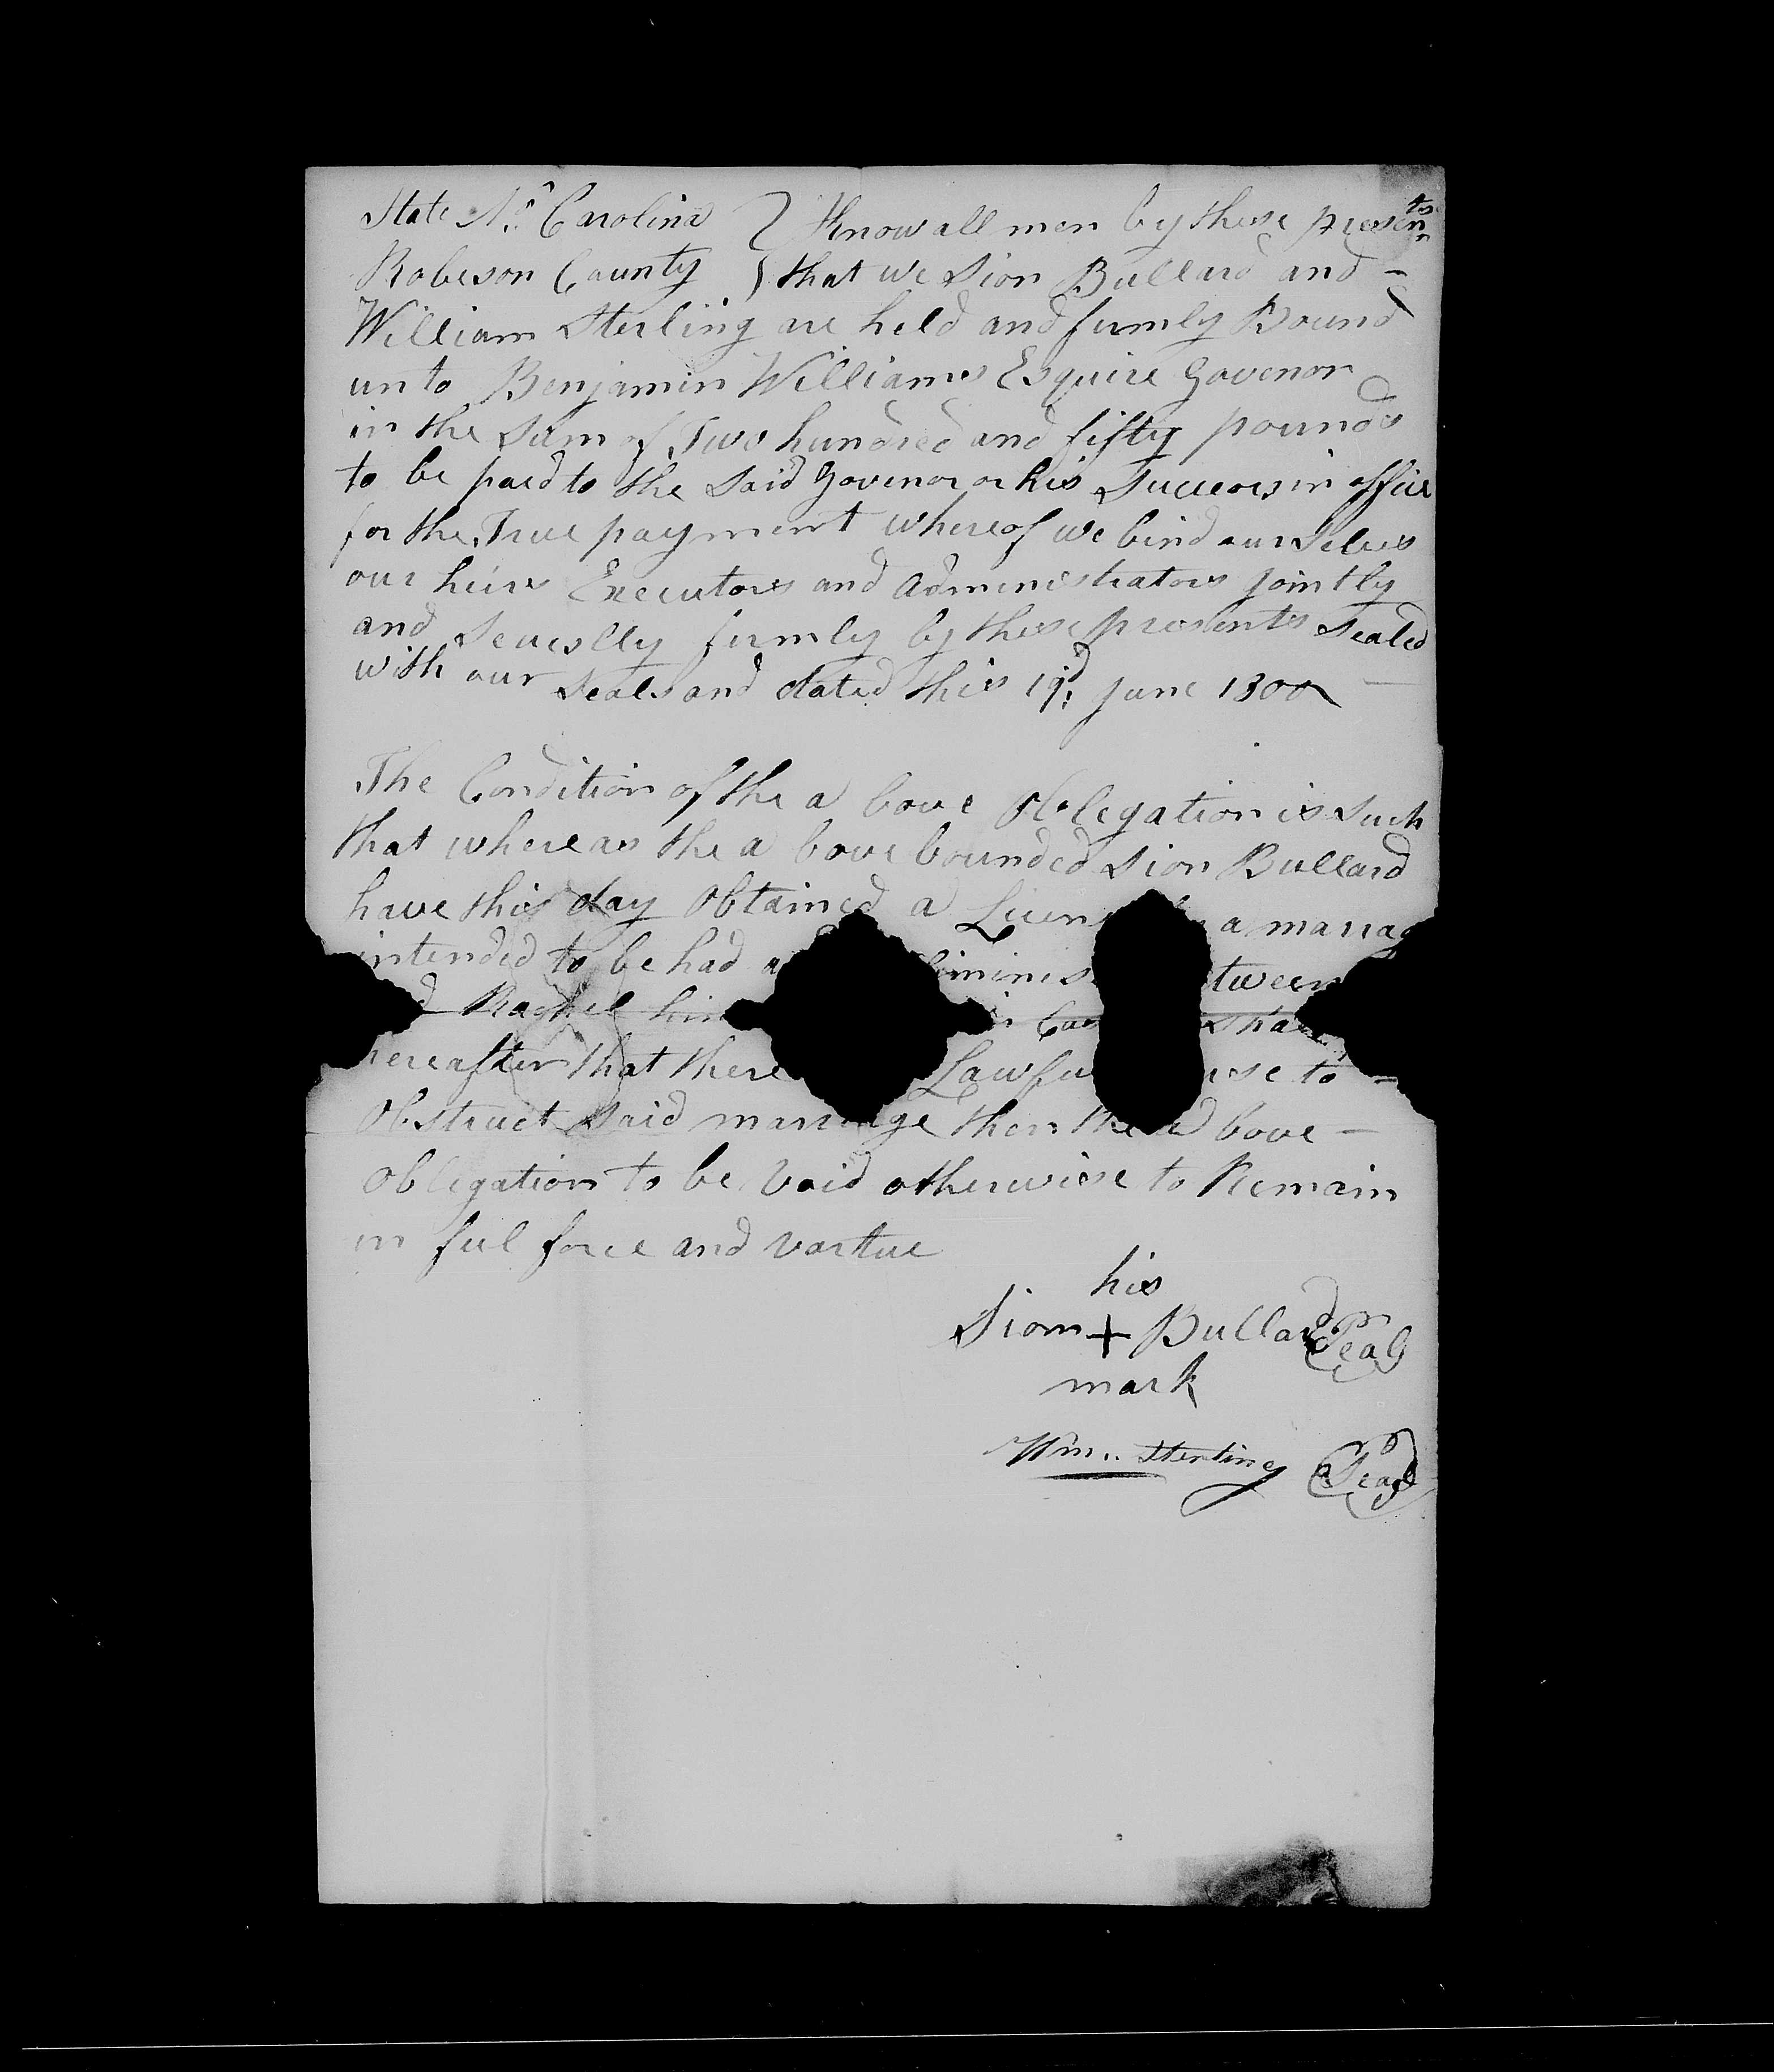 State No. Carolina } Know all men by these presents
Robeson County } that we Sion Bullard and -
William Sterling are held and firmly Bound
unto Benjamin Williams Esquire Govenor
in the Sum of Two hundred and fifty pounds
to be paid to the Said Govenor or his Succeors in office
for the True payment whereof we bind our Selves
our heirs Executors and Administrators jointly
and Severlly firmly by these presents Sealed
with our Seals and dated this 19d June 1800
The Condition of the a bove Oblegation is Such
that whereas the a bove bounded Sion Bullard
have this day Obtained a a marrag
intended to be had
Rachel
hereafter that there to -
Obstruct Said marrage then the a bove -
Oblegation to be Void otherwise to Remain
in ful force and vartue
his
Sion + Bullard Seal
mark
Wm. Sterling Seal